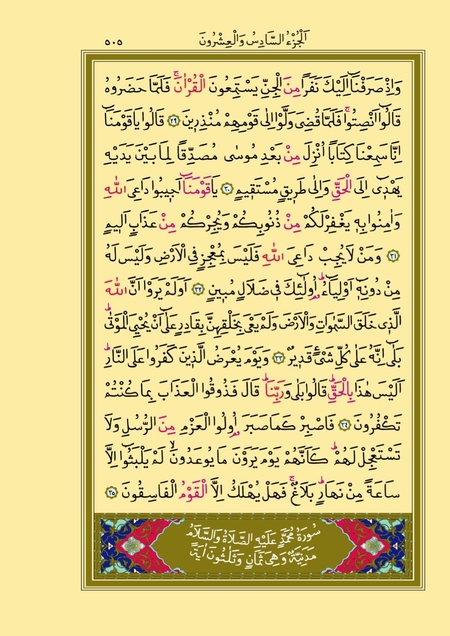 ٥٠٥ اَلْجُزْءُ السَّادِسُ وَالْعِشْرُونَ
وَاِذْ صَرَفْنَٓا اِلَيْكَ نَفَرًا مِنَ الْجِنِّ يَسْتَمِعُونَ الْقُرْاٰنَۚ فَلَمَّا حَضَرُوهُ
قَالُٓوا اَنْصِتُواۚ فَلَمَّا قُضِيَ وَلَّوْا اِلٰى قَوْمِهِمْ مُنْذِرٖينَ ﴿٢٩﴾ قَالُوا يَا قَوْمَنَٓا
اِنَّا سَمِعْنَا كِتَابًا اُنْزِلَ مِنْ بَعْدِ مُوسٰى مُصَدِّقًا لِمَا بَيْنَ يَدَيْهِ
يَهْدٖٓي اِلَى الْحَقِّ وَاِلٰى طَرٖيقٍ مُسْتَقٖيمٍ ﴿٣٠﴾ يَا قَوْمَنَٓا اَجٖيبُوا دَاعِيَ اللّٰهِ
وَاٰمِنُوا بِهٖ يَغْفِرْ لَكُمْ مِنْ ذُنُوبِكُمْ وَيُجِرْكُمْ مِنْ عَذَابٍ اَلٖيمٍ
﴿٣١﴾ وَمَنْ لَا يُجِبْ دَاعِيَ اللّٰهِ فَلَيْسَ بِمُعْجِزٍ فِي الْاَرْضِ وَلَيْسَ لَهُ
مِنْ دُونِهٖٓ اَوْلِيَٓاءُۜ اُو۬لٰٓئِكَ فٖي ضَلَالٍ مُبٖينٍ ﴿٣٢﴾ اَوَلَمْ يَرَوْا اَنَّ اللّٰهَ
الَّذٖي خَلَقَ السَّمٰوَاتِ وَالْاَرْضَ وَلَمْ يَعْيَ بِخَلْقِهِنَّ بِقَادِرٍ عَلٰٓى اَنْ يُحْيِيَ الْمَوْتٰىۜ
بَلٰٓى اِنَّهُ عَلٰى كُلِّ شَيْءٍ قَدٖيرٌ ﴿٣٣﴾ وَيَوْمَ يُعْرَضُ الَّذٖينَ كَفَرُوا عَلَى النَّارِۜ
اَلَيْسَ هٰذَا بِالْحَقِّۜ قَالُوا بَلٰى وَرَبِّنَاۜ قَالَ فَذُوقُوا الْعَذَابَ بِمَا كُنْتُمْ
تَكْفُرُونَ ﴿٣٤﴾ فَاصْبِرْ كَمَا صَبَرَ اُو۬لُوا الْعَزْمِ مِنَ الرُّسُلِ وَلَا
تَسْتَعْجِلْ لَهُمْۜ كَاَنَّهُمْ يَوْمَ يَرَوْنَ مَا يُوعَدُونَۙ لَمْ يَلْبَثُٓوا اِلَّا
سَاعَةً مِنْ نَهَارٍۜ بَلَاغٌۚ فَهَلْ يُهْلَكُ اِلَّا الْقَوْمُ الْفَاسِقُونَ ﴿٣٥﴾
سُورَةُ مُحَمَّدٍ عَلَيْهِ الصَّلَاةُ وَالسَّلَامُ
مَدَنِيَّةٌ وَهِيَ ثَمَانٍ وَثَلٰثُونَ اٰيَةً